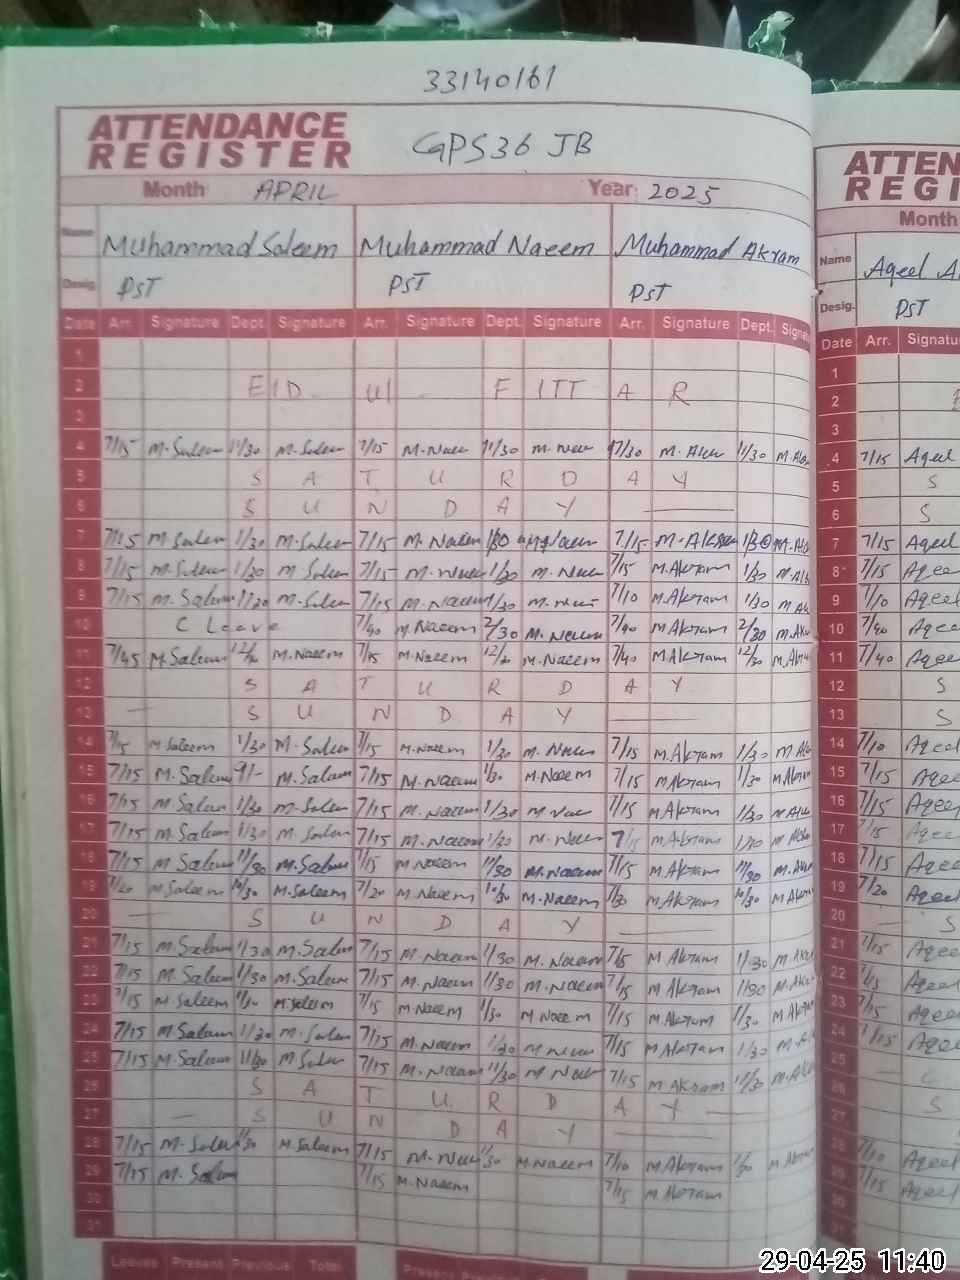 33140161
ATTENDANCE REGISTER GPS 36 JB
Month APRIL Year: 2025
Name Muhammad Saleem Muhammad Naeem Muhammad Akram
Desig. PST PST PST
Date Arr. Signature Dept. Signature Arr. Signature Dept. Signature Arr. Signature Dept. Signatu
1
2 EID UL FITTAR
3
4 7/15 M.Saleem 11/30 M.Saleem 7/15 M.Naeem 11/30 M.Naeem M.Akram 11/30
5 SATURDAY
6 SUNDAY
7 7/15 M.Saleem 1/30 M.Saleem 7/15 M.Naeem 1/30 M.Naeem 7/15 M.Akram 1/30
8 7/15 M.Saleem 1/30 M.Saleem 7/15 M.Naeem 1/30 M.Naeem 7/15 M.Akram 1/30
9 7/15 M.Saleem 1/30 M.Saleem 7/15 M.Naeem 1/30 7/10 M.Akram 1/30
10 C Leave 7/40 M.Naeem 2/30 M.Naeem 7/40 M.Akram 2/30
11 7/45 M.Saleem M.Naeem 7/15 M.Naeem M.Naeem 7/40 M.Akram 12/30
12 SATURDAY
13 SUNDAY
14 7/15 M.Saleem 1/30 M.Saleem 7/15 M.Naeem 1/30 M.Naeem 7/15 M.Akram 1/30
15 7/15 M.Saleem 9/- M.Saleem 7/15 M.Naeem 1/30 M.Naeem 7/15 M.Akram 1/30
16 7/15 M.Saleem 1/30 M.Saleem 7/15 M.Naeem 1/30 M.Naeem 7/15 M.Akram 1/30
17 7/15 M.Saleem 1/30 M.Saleem 7/15 M.Naeem 1/30 M.Naeem 7/15 M.Akram 1/30
18 7/15 M.Saleem 11/30 M.Saleem 7/15 M.Naeem 11/30 M.Naeem 7/15 M.Akram 11/30
19 M.Saleem 10/30 M.Saleem 7/20 M.Naeem 10/30 M.Naeem M.Akram 10/30
20 SUNDAY
21 7/15 M.Saleem 1/30 M.Saleem 7/15 M.Naeem 1/30 M.Naeem 7/15 M.Akram 1/30
22 7/15 M.Saleem 1/30 M.Saleem 7/15 M.Naeem 1/30 M.Naeem 7/15 M.Akram 1/30
23 7/15 M.Saleem 1/30 M.Saleem 7/15 M.Naeem 1/30 M.Naeem 7/15 M.Akram 1/30
24 7/15 M.Saleem 1/30 M.Saleem 7/15 M.Naeem 1/30 M.Naeem 7/15 M.Akram 1/30
25 7/15 M.Saleem 11/30 M.Saleem 7/15 M.Naeem 11/30 M.Naeem 7/15 M.Akram 11/30
26 SATURDAY
27 SUNDAY
28 7/15 M.Saleem 1/30 M.Saleem 7/15 M.Naeem 1/30 M.Naeem 7/10 M.Akram 1/30
29 7/15 M.Saleem 7/15 M.Naeem 7/15 M.Akram
30
31
Leaves Present Previous Total
ATTEN
REGI
Month
Name Aqeel A
Desig. PST
Date Arr. Signatu
1
2
3
4 7/15 Aqeel
5 S
6 S
7 7/15 Aqeel
8 7/15 Aqeel
9 7/10 Aqeel
10 7/40 Aqeel
11 7/40 Aqeel
12 S
13 S
14 7/10 Aqeel
15 7/15 Aqeel
16 7/15 Aqeel
17 7/15 Aqeel
18 7/15 Aqeel
19 7/20 Aqeel
20 S
21 7/15 Aqeel
22 7/15 Aqeel
23 7/15 Aqeel
24 7/15 Aqeel
25
26 S
27 S
28 7/10 Aqeel
29 7/15 Aqeel
30
29-04-25 11:40